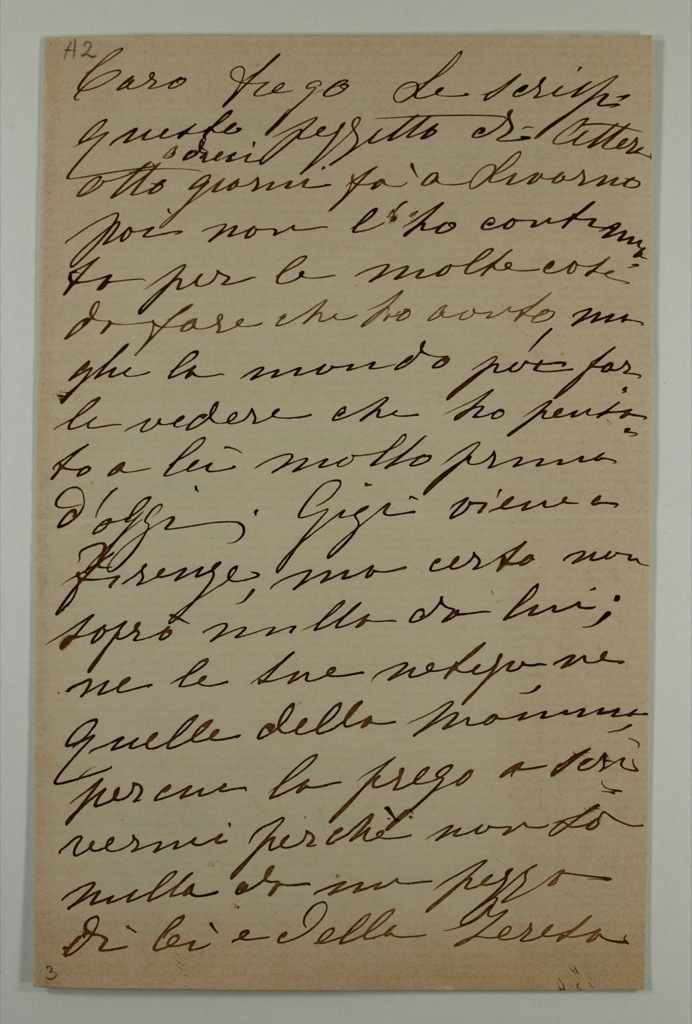 A2
Caro  Le scrissi
questo pezzetto di lettera
o dieci
otto giorni fa a Livorno
poi non l'ho continua=
ta per le molte cose
da fare che ho avuto, ma
glie la mando per far
le vedere che ho pensa=
to a lei molto prima
d'oggi. Gigi viene a
Firenze, ma certo non
saprò nulla da lui;
ne le sue notizie ne
quelle della mamma,
 la prego a scri=
vermi perchè non sò
nulla da un pezzo
di lei e della Teresa
3